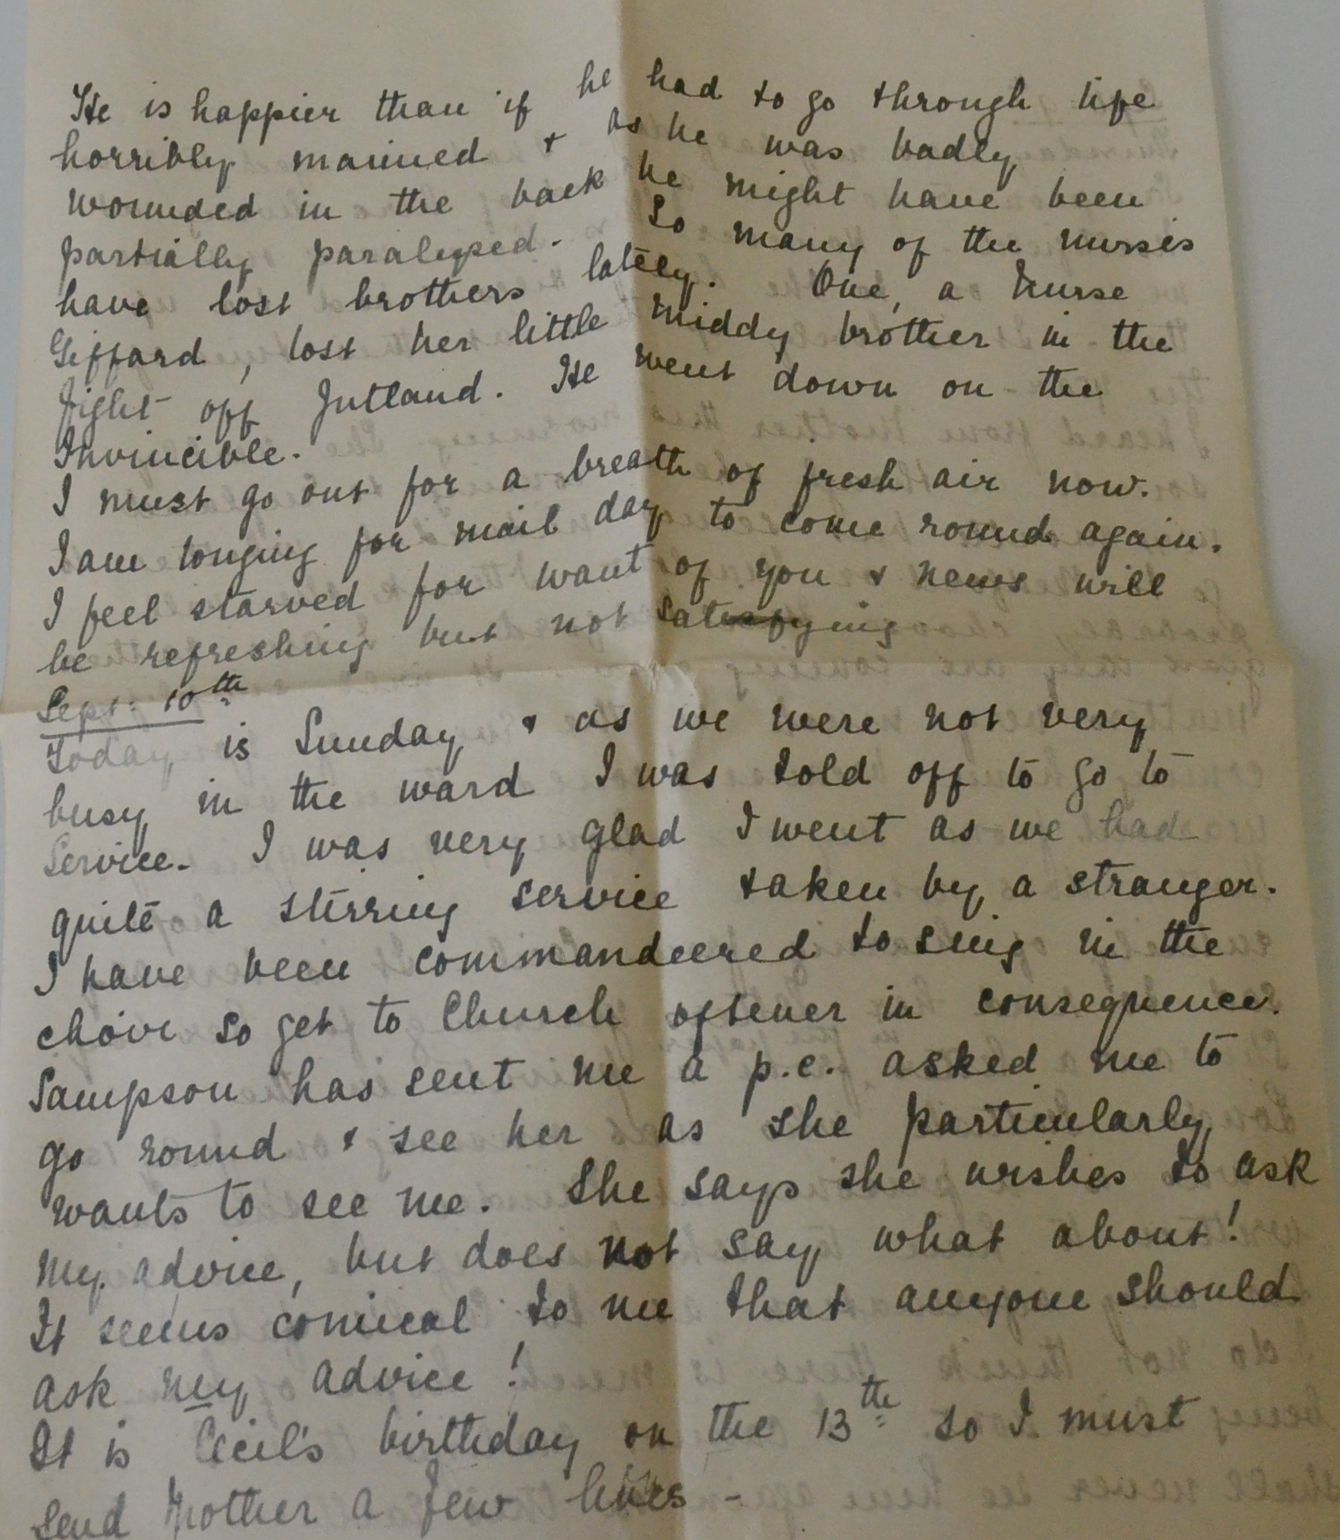 He is happier than if he had to go through life
horribly maimed & as he was badly
wounded in the back he might have been
partially paralysed. So many of the nurses
have lost brothers lately. One, a Nurse
Giffard, lost her little middy brother in the
fight off Jutland. He went down on the
Invincible.
I must go out for a breath of fresh air now.
I am longing for mail day to come round again.
I feel starved for want of you & news will
be refreshing but not satisfying
Sept: 10th
Today is Sunday & as we were not very
busy in the ward I was told off to go to
Service. I was very glad I went as we had
quite a stirring service taken by a stranger.
I have been commandeered to sing in the
choir so get to Church oftener in consequence.
Sampson has sent me a p.c. asked me to
go round & see her as she particularly
wants to see me. She says she wishes to ask
my advice, but does not say what about!
It seems comical to me that anyone should
ask my advice!
It is Cecil's birthday on the 13th so I must
send Mother a few lines -